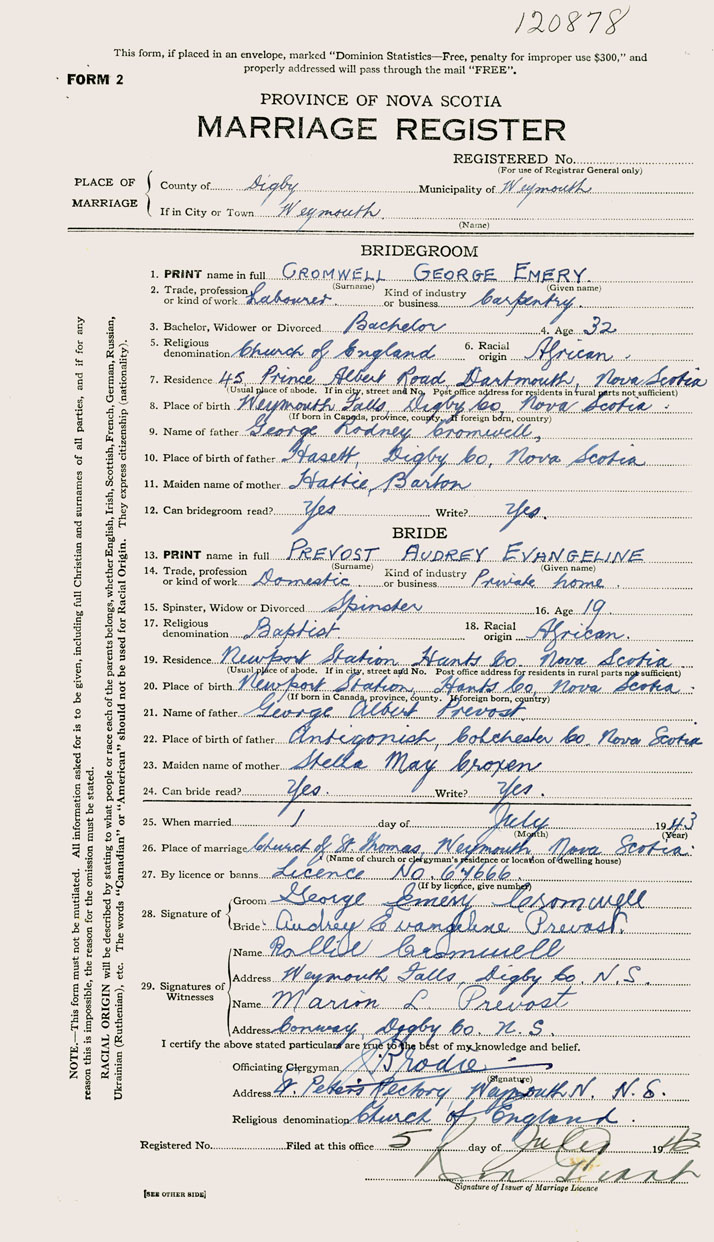 120878
This form, if placed in an envelope, marked "Dominion Statistics—Free, penalty for improper use $300," and
properly addressed will pass through the mail "FREE".
FORM 2
PROVINCE OF NOVA SCOTIA
MARRIAGE REGISTER
REGISTERED No.
(For use of Registrar General only)
PLACE OF MARRIAGE
County of Digby Municipality of Weymouth
If in City or Town Weymouth
(Name)
BRIDEGROOM
1. PRINT name in full CROMWELL GEORGE EMERY.
(Surname) (Given name)
2. Trade, profession or kind of work Labourer. Kind of industry or business Carpentry.
3. Bachelor, Widower or Divorced Bachelor 4. Age 32
5. Religious denomination Church of England 6. Racial origin African.
7. Residence 45, Prince Albert Road, Dartmouth, Nova Scotia
(Usual place of abode. If in city, street and No. Post office address for residents in rural parts not sufficient)
8. Place of birth Weymouth Falls, Digby Co, Nova Scotia
(If born in Canada, province, county. If foreign born, country)
9. Name of father George Rodney Cromwell,
10. Place of birth of father Hasett, Digby Co, Nova Scotia
11. Maiden name of mother Hattie, Barton
12. Can bridegroom read? Yes Write? Yes.
BRIDE
13. PRINT name in full PREVOST AUDREY EVANGELINE
(Surname) (Given name)
14. Trade, profession or kind of work Domestic Kind of industry or business Private home.
15. Spinster, Widow or Divorced Spinster 16. Age 19
17. Religious denomination Baptist. 18. Racial origin African.
19. Residence Newport Station Hants Co. Nova Scotia
(Usual place of abode. If in city, street and No. Post office address for residents in rural parts not sufficient)
20. Place of birth Newport Station, Hants Co, Nova Scotia.
(If born in Canada, province, county. If foreign born, country)
21. Name of father George Albert Prevost
22. Place of birth of father Antigonish, Colchester Co. Nova Scotia
23. Maiden name of mother Stella May Croxen
24. Can bride read? Yes. Write? Yes.
25. When married 1 day of July 1943
(Month) (Year)
26. Place of marriage Church of St Thomas, Weymouth, Nova Scotia.
(Name of church or clergyman's residence or location of dwelling house)
27. By licence or banns Licence No. 67666.
(If by licence, give number)
28. Signature of
Groom George Emery Cromwell
Bride Audrey Evangeline Prevost.
29. Signatures of Witnesses
Name Rollie Cromwell
Address Weymouth Falls, Digby Co, N.S.
Name Marion L Prevost
Address Conway, Digby Co. N.S.
I certify the above stated particulars are true to the best of my knowledge and belief.
Officiating Clergyman Brodie
(Signature)
Address St. Peter's Rectory Weymouth.N. N.S.
Religious denomination Church of England.
Registered No. Filed at this office 5 day of July 1943
Signature of Issuer of Marriage Licence
[SEE OTHER SIDE]
NOTE.—This form must not be mutilated. All information asked for is to be given, including full Christian and surnames of all parties, and if for any
reason this is impossible, the reason for the omission must be stated.
RACIAL ORIGIN will be described by stating to what people or race each of the parents belongs, whether English, Irish, Scottish, French, German, Russian,
Ukrainian (Ruthenian), etc. The words "Canadian" or "American" should not be used for Racial Origin. They express citizenship (nationality).